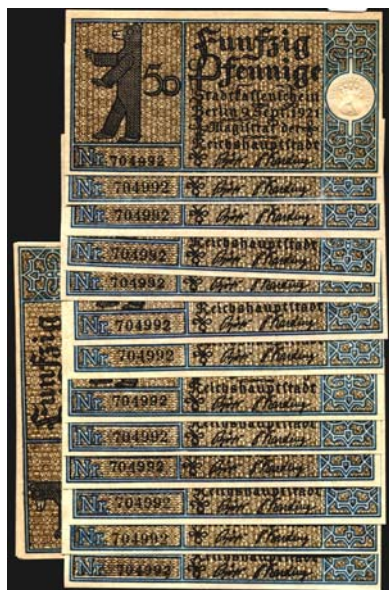 Funfzig
50 Pfennige
Stadtkassenschein
Berlin, 9. Sept. 1921
Magistrat der
Reichshauptstadt
Nr. 704992
Nr. 704992
Nr. 704992
Nr. 704992
Reichshauptstadt
Nr. 704992
Reichshauptstadt
Nr. 704992
Nr. 704992
Reichshauptstadt
Nr. 704992
Nr. 704992
Nr. 704992
Nr. 704992
Nr. 704992
Nr. 704992
Funfzig